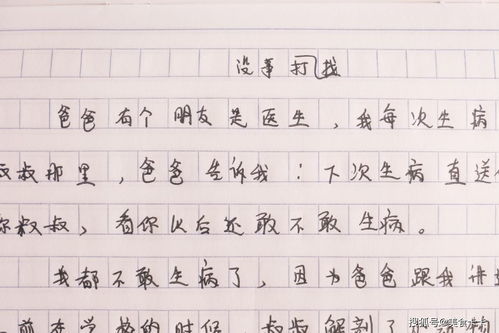 没事打找
爸爸有个朋友是医生，我每次生病
叔叔那里，爸爸告诉我：下次生病直送
你叔叔，看你以后还敢不敢生病。
我都不敢生病了，因为爸爸跟我讲
前在学校的时候 叔叔解剖了
搜狐号@美食